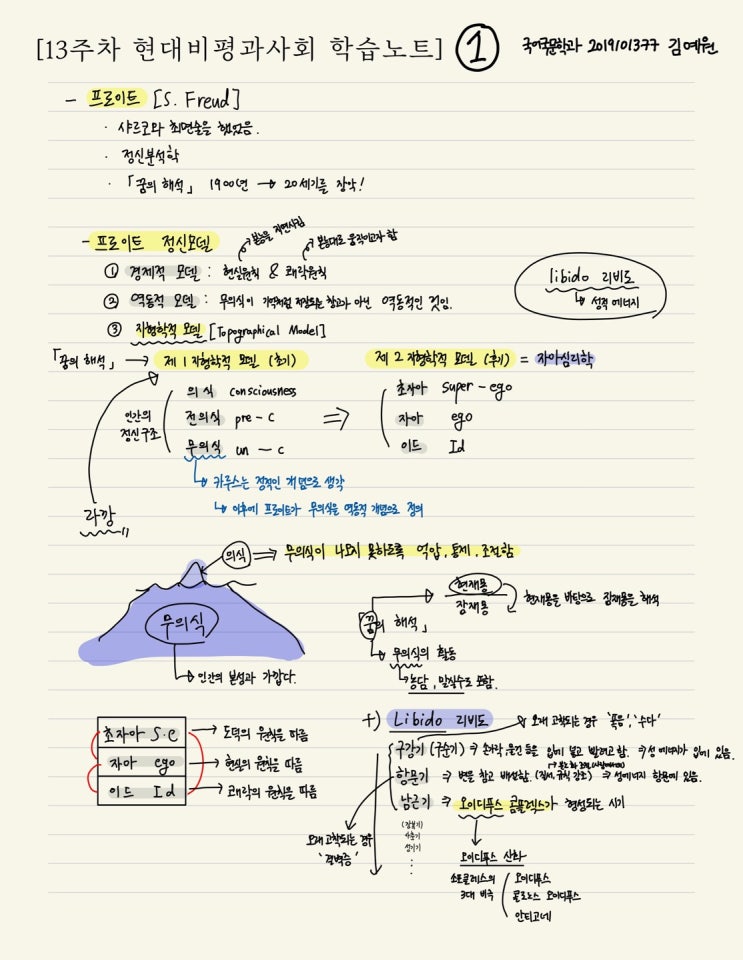 [13주차 현대비평과사회 학습노트] ① 국어국문학과 2019101377 김예원
- 프로이트 [S. Freud]
· 샤르코와 최면술을 했었음.
· 정신분석학
· 「꿈의 해석」 1900년 → 20세기를 장악!
- 프로이트 정신모델
본능을 지연시킴
본능대로 움직이고자 함
① 경제적 모델 : 현실원칙 & 쾌락원칙
② 역동적 모델 : 무의식이 기억처럼 저장되는 창고가 아닌 역동적인 것임.
③ 지형학적 모델 [Topographical Model]
libido 리비도
↳ 성적 에너지
「꿈의 해석」 → 제 1 지형학적 모델 (초기)
제 2 지형학적 모델 (후기) = 자아심리학
인간의 정신구조
의식 consciousness
전의식 pre - c
무의식 un - c
⇒
초자아 super - ego
자아 ego
이드 Id
↳ 카루스는 정적인 개념으로 생각
↳ 이후에 프로이트가 무의식을 역동적 개념으로 정의
라깡
의식 ⇒ 무의식이 나오지 못하도록 억압, 통제, 조절함
무의식
↳ 인간의 본성과 가깝다.
현재몽
잠재몽
현재몽을 바탕으로 잠재몽을 해석
「꿈의 해석」
↳ 무의식의 활동
↳ 농담, 말실수도 포함.
초자아 S.e → 도덕의 원칙을 따름
자아 ego → 현실의 원칙을 따름
이드 Id → 쾌락의 원칙을 따름
+) Libido 리비도
오래 고착되는 경우 '폭음', '수다'
구강기 (구순기) ⇒ 손가락, 물건 등을 입에 넣고 빨려고 함. ⇒ 성 에너지가 입에 있음.
항문기 ⇒ 변을 참고 배설함. (질서, 규칙 강조) ⇒ 성에너지 항문에 있음.
남근기 ⇒ 오이디푸스 콤플렉스가 형성되는 시기
(잠복기)
사춘기
성기기
⋮
오래 고착되는 경우
'결벽증'
오이디푸스 신화
소포클레스의
3대 비극
오이디푸스
콜로노스 오이디푸스
안티고네